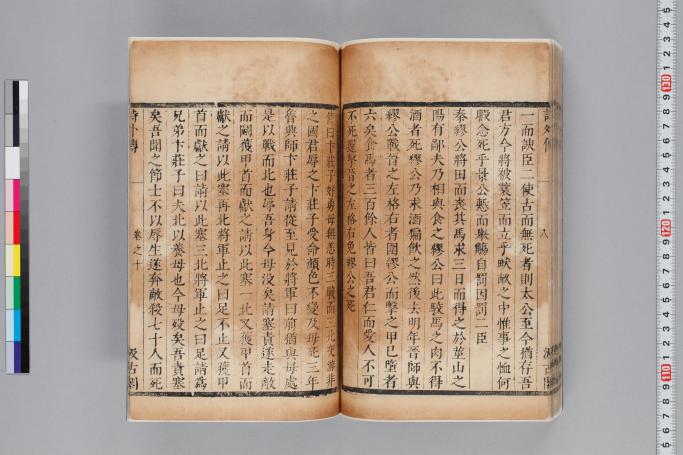 詩外傳
八
汲古閣
一而諛臣二使古而無死者則太公至今猶存吾
君方今將被蓑笠而立乎畎畝之中惟事之恤何
暇念死乎景公慙而舉觴自罰因罰二臣
秦繆公將田而喪其馬求三日而得之於莖山之
陽有鄙夫乃相與食之繆公曰此駮馬之肉不得
酒者死繆公乃求酒徧飲之然後去明年晉師與
繆公戰晉之左格右者圍繆公而擊之甲已墮者
六矣食馬者三百餘人皆曰吾君仁而愛人不可
不死還擊晉之左格右免繆公之死
傳曰卞莊子好勇母無恙時三戰而三北交游非
之國君辱之卞莊子受命顏色不變及母死三年
魯興師卞莊子請從至見於將軍曰前猶與母處
是以戰而北也辱吾身今母沒矣請塞責遂走敵
而鬬獲甲首而獻之請以此塞一北又獲甲首而
獻之請以此塞再北將軍止之曰足不止又獲甲
首而獻之曰請以此塞三北將軍止之曰足請為
兄弟卞莊子曰夫北以養母也今母歿矣吾責塞
矣吾聞之節士不以辱生遂奔敵殺七十人而死
詩外傳
卷之十
汲古閣